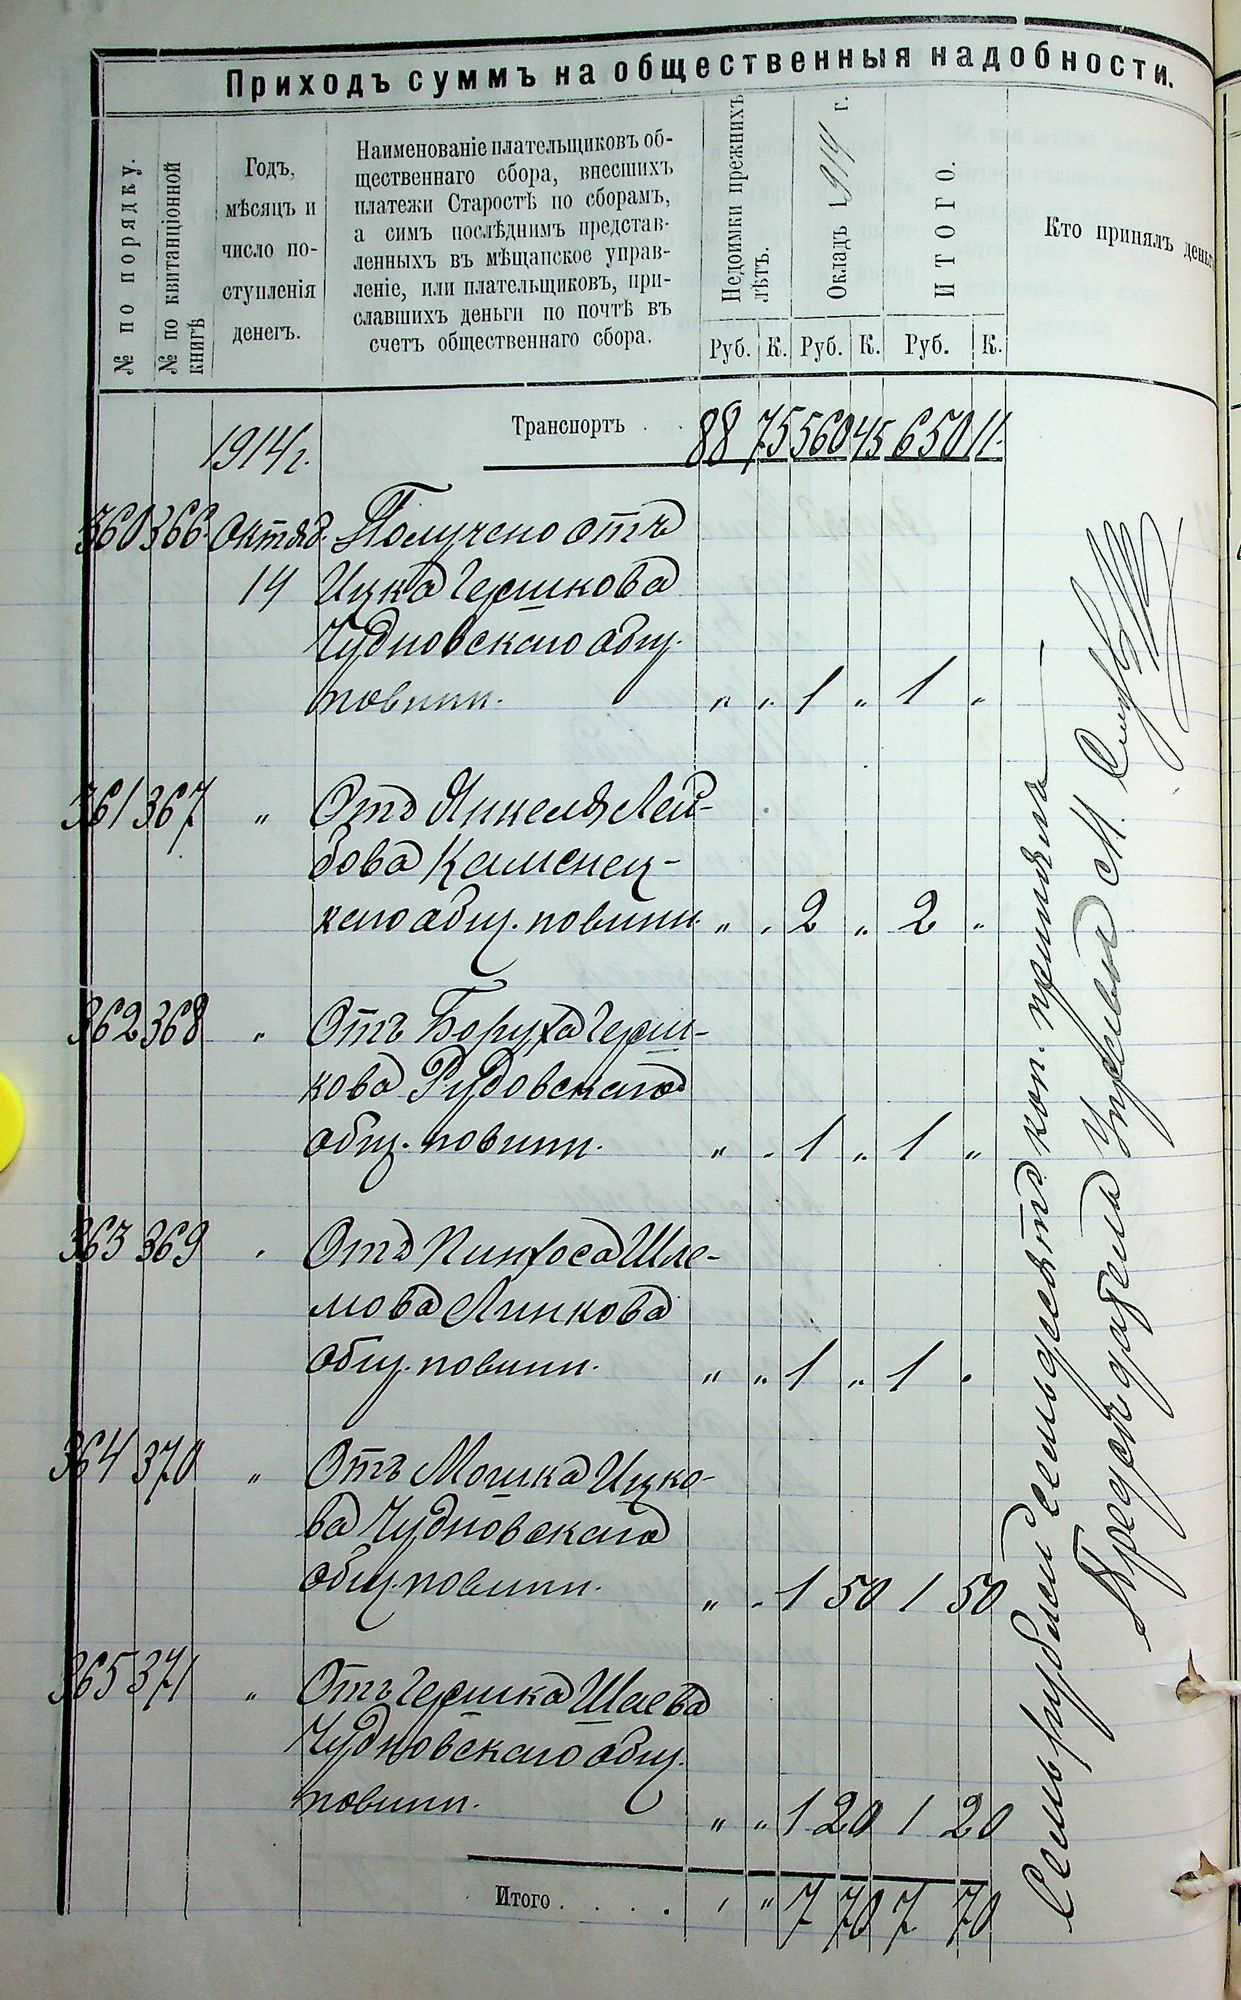 Приходъ суммъ на общественныя надобности.
№ по порядку.
№ по квитанціонной книгѣ
Годъ,
мѣсяцъ и
число по-
ступленія
денегъ.
Наименованіе плательщиковъ об-
щественнаго сбора, внесшихъ
платежи Старостѣ по сборамъ,
а симъ послѣднимъ представ-
ленныхъ въ мѣщанское управ-
леніе, или плательщиковъ, при-
славшихъ деньги по почтѣ въ
счетъ общественнаго сбора.
Недоимки прежнихъ
лѣтъ.
Окладъ 1914 г.
ИТОГО.
Кто принялъ деньг
Руб. К. Руб. К. Руб. К.
Транспортъ . . 88 75 560 45 650 11.
1914 г.
360 366. Октяб. Получено отъ
14 Ицка Гершкова
Чудновскаго общ.
повинн. „ „ 1 „ 1 „
361 367 „ Отъ Янкеля Лей-
бова Каменец-
каго общ. повинн. „ „ 2 „ 2 „
362 368 „ Отъ Боруха Герш-
кова Рудовскаго
общ. повинн. „ „ 1 „ 1 „
363 369 „ Отъ Пинхоса Шле-
мова Линкова
общ. повинн. „ „ 1 „ 1 „
364 370 „ Отъ Мошка Ицко-
ва Чудновскаго
общ. повинн. „ „ 1 50 1 50
365 371 „ Отъ Гершка Шаева
Чудновскаго общ.
повинн. „ „ 1 20 1 20
Итого . . . . „ „ 7 70 7 70
Семь рублей семьдесятъ коп. принялъ
Председатель Управы М.